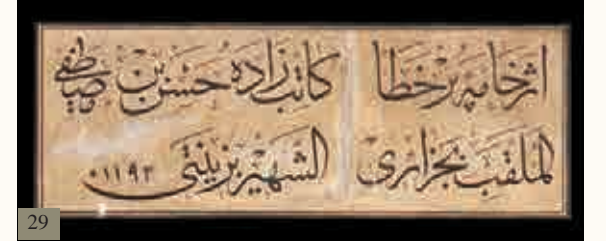 اثر خامه پر خطا كاتب زاده حسن بن مصطفى
الملقب بجزائرى الشهير بزينتى ١١٩٣
29